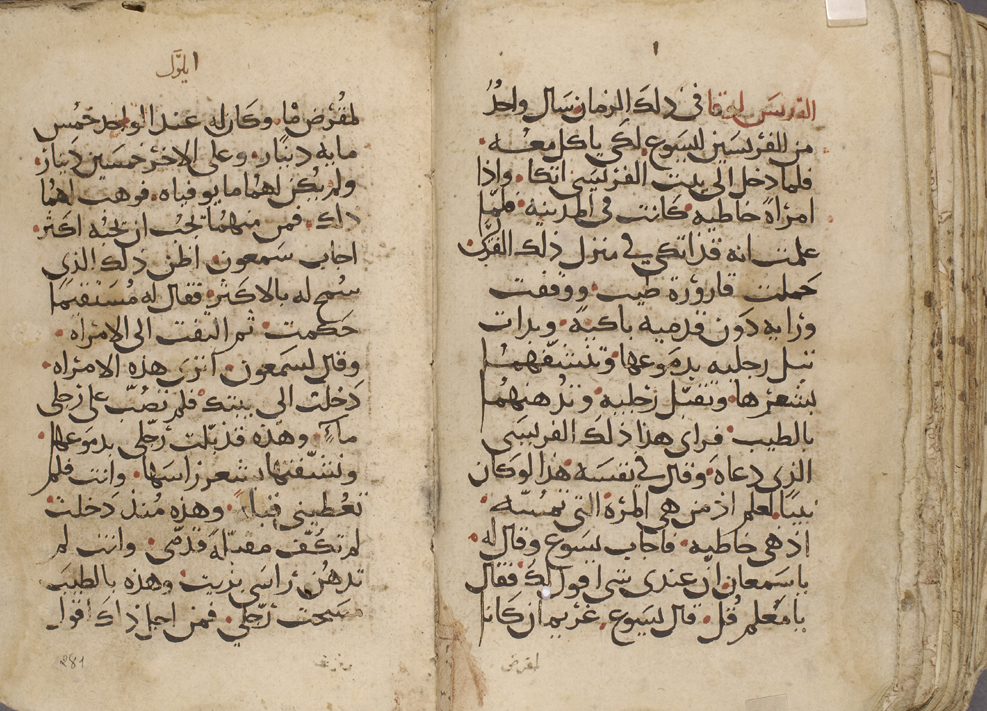 ا
القديس لوقا في ذلك الزمان سال واحدُ
من الفريسيين ليسوع لكي ياكل معه
فلما دخل الى بيت الفريسي اتكا واذا
امراة خاطيه كانت في المدينه فلما
علمت انه قد اتكي في منزل ذلك الفريسي
حملت قارورة طيب ووقفت
ورايه دون قدميه باكية وبدات
تبل رجليه بدموعها وتنشفهما
بشعرها وتقبل رجليه وتدهنهما
بالطيب فراى هذا ذلك الفريسي
الذي دعاه وقال في نفسه هذا لو كان
نبيا لعلم اذ من هي المرة التي تمسه
اذ هي خاطيه فاجاب يسوع وقال له
يا سمعان ان عندي شي اقول لك فقال
يا معلم قُل قال يسوع غريمان كانا
لمقرض
ايلول
لمقرض ما وكان له عند الواحد خمس
مايه دينار وعلى الاخر خمسين دينار
ولم يكن لهما ما يوفياه فوهب لهما
ذاك فمن منهما تحب ان يحبه اكثر
اجاب سمعون اظن ذلك الذي
سمح له بالاكثر فقال له مستقيما
حكمت ثم التفت الى الامراه
وقال لسمعون اترى هذه الامراه
دخلت الى بيتك فلم تصب على رجلي
ماء وهذه قد بلت رجلي بدموعها
ونشفتها بشعر راسها وانت فلم
تعطيني قبلة وهذه مُنذ دخلت
لم تكف مقبلة قدمي وانت لم
تدهن راسي بزيت وهذه بالطيب
مسحت رجلي فمن اجل ذاك اقول